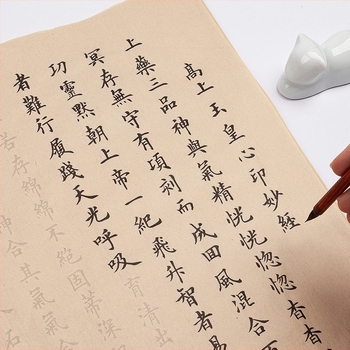 高上玉皇心印妙經
上藥三品神與氣精恍恍惚惚杳杳
冥存無守有頃刻而成回風混合百
功靈默朝上帝一紀飛升智者易
者難行履踐天光呼吸育清出
若存綿綿不絕固蒂深
神合其氣氣
石